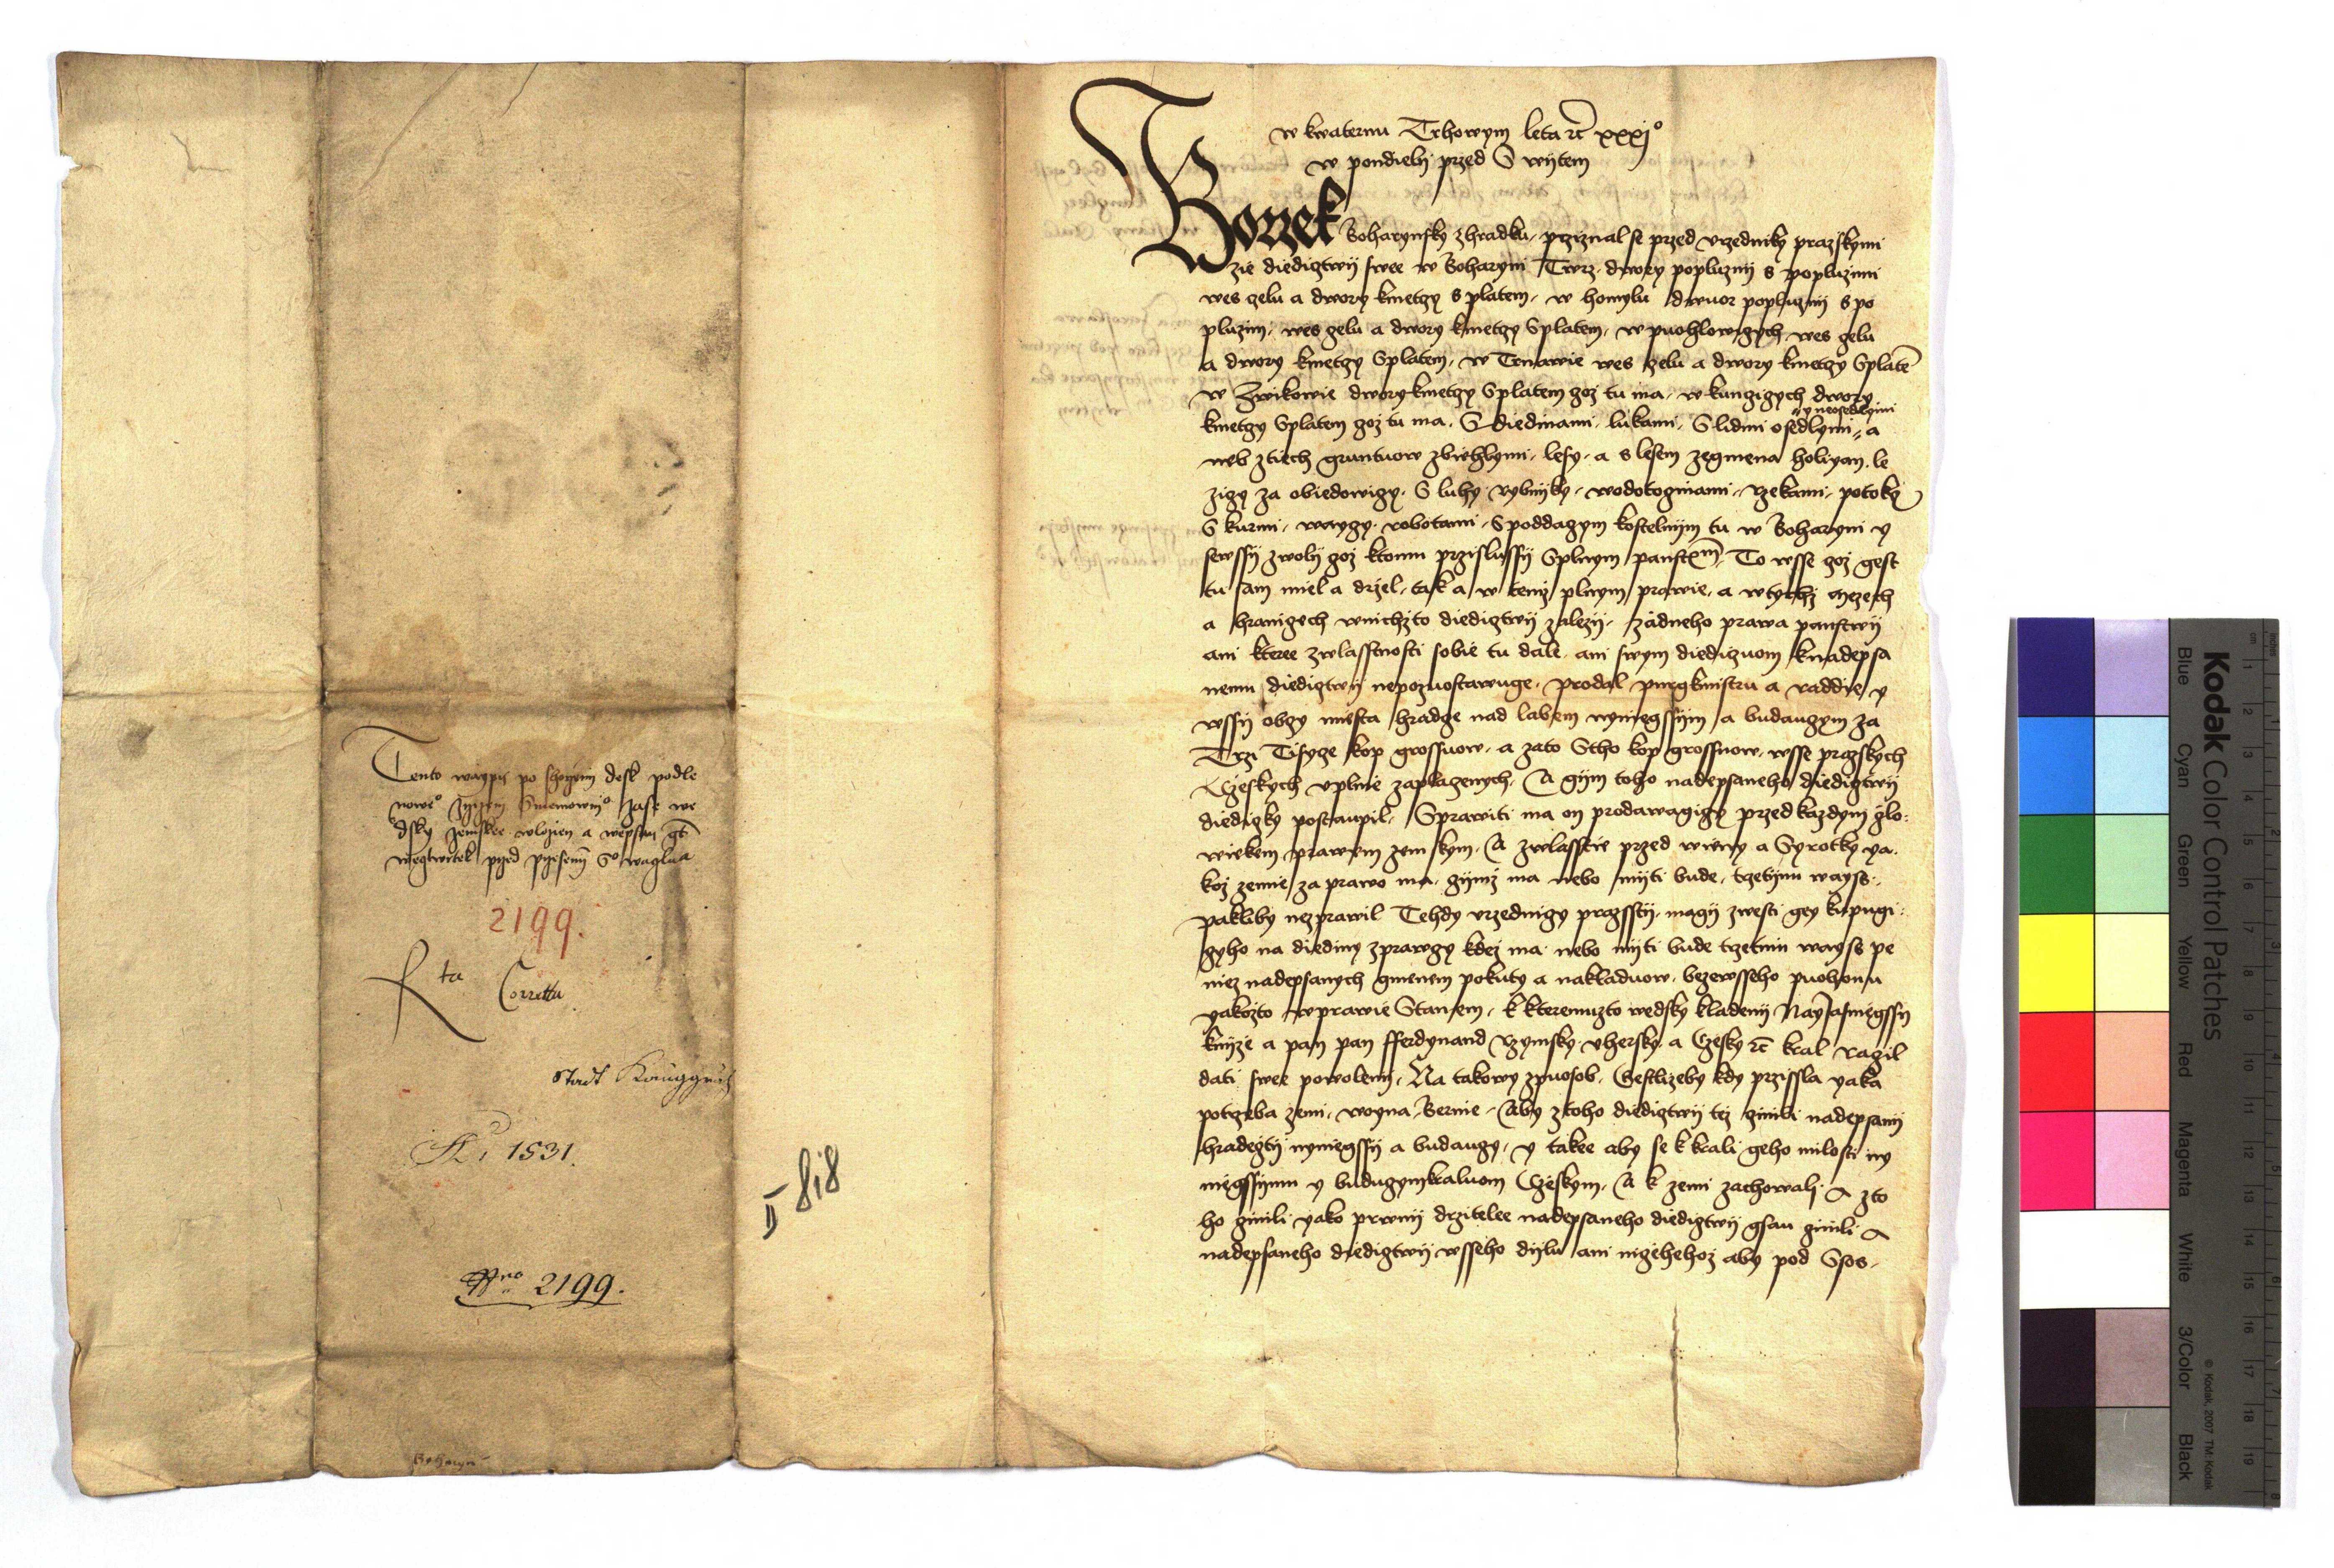 w kwaternu Trhowym leta ꝛč xxxjº
w pondieli przed S wijtem
Borzek Boharynsky zhradku, prziznal se przed vrzedniky prazskymi
zie diedigtwij swee w Boharyni Twrz. dwory popluznij s popluzimi
wes gelu a dwory kmetzy s platem, w homylu dwuor popluznij s po
pluzim, wes gelu a dwory kmetzy Splatem, w puohlowigych wes gelu
a dwory kmetzy Splatem, w Trnawie wes gelu a dwory kmetzy Splatē
w Zwikowie dwory kmetzy Splatem goz tu ma, w kunzigych dwory
kmetzy Splatem goz tu ma, S diedinami, lukami, S lidmi osedlymi y neosedlymi a
neb ztiech gruntuow zbiehlymi, lesy, a s lesem zegmena holiyan. le
zigy za obiedowigy, S luhy rybniky, wodotoginami, rzekami, potoky
S kurmi, waygy, robotami, Spoddagym kostelnijm tu w Boharyni y
sewssij zwolij goz ktomu przislussij Splnym panstwm, To wsse goz gest
tu sam miel a drzel, tak a w temz plnym prawie, a wtychz mezech
a hranigech wnichzto diedigtwij zalezij, zadneho prawa panstwij
ani kteree zwlasstnosti sobie tu dale, ani swym diediguom knadepsa
nemu diedigtwij nepozuostawuge, prodal purgkmistru a raddie y
wssij obgy miesta hradge nad labem nyniegssijm a budaugym za
Trzi Tisyge kop grossuow, a zato Stho kop grossuow, wsse prazskych
Czeskych vplnie zaplagenych, A gijm toho nadepsaneho diedigtwij
diedigky postaupil, Sprawiti ma on prodawagigy przed kazdym glo-
wiekem prawem zemskym, A zwlasstie przed wieny a Syrotky ya-
koz zemie za prawo ma, gijmz ma nebo mijti bude, trzetijnu wayss,
pakliby nezprawil Tehdy vrzednigy prazsstij, magij zwesti gey kupugi-
gyho na diediny zprawgy kdez ma nebo mijti bude trzetinu wayss pe
niez nadepsanych gmenem pokuty a nakladuow, bezewsseho puohonu
yakozto wprawie Stanem, k kteremuzto wedsky kladenij Nayjasniegssij
knijze a pan pan fferdynand Rzymsky vhersky a Czesky ꝛč kral ragil
dati swee powolenij, Na takowy zpuosob, Gestlizeby kdy przissla yaka
potrzeba zemi, woyna, Bernie, Aby ztoho diedigtwij tez ginili nadepsanij
hradegtij nyniegssij a budaugy, y takee aby se k krali geho milosti ny
niegssijmu y budugym kraluom Czeskym, A k zemi zachowali, A zto
ho ginili yako prwnij drzitelee nadepsaneho diedigtwij gsau ginili A
nadepsaneho diedigtwij wsseho dijlu ani nigehehoz aby pod Spos-
Tento waypis po shorzenij desk podle
noweº Sniemowniº zase we
dsky zemskee wlozien a wepsan gt
wegtwrtek przed Sº waglawa
2199.
Rta Corretta
Stadt Königgrätz
Aº 1531.
Nro 2199.
Boharyn
II 818
Kodak Color Control Patches
© Kodak, 2007 TM: Kodak
Blue Cyan Green Yellow Red Magenta White 3/Color Black
cm 1 2 3 4 5 6 7 8 9 10 11 12 13 14 15 16 17 18 19
inches 1 2 3 4 5 6 7 8